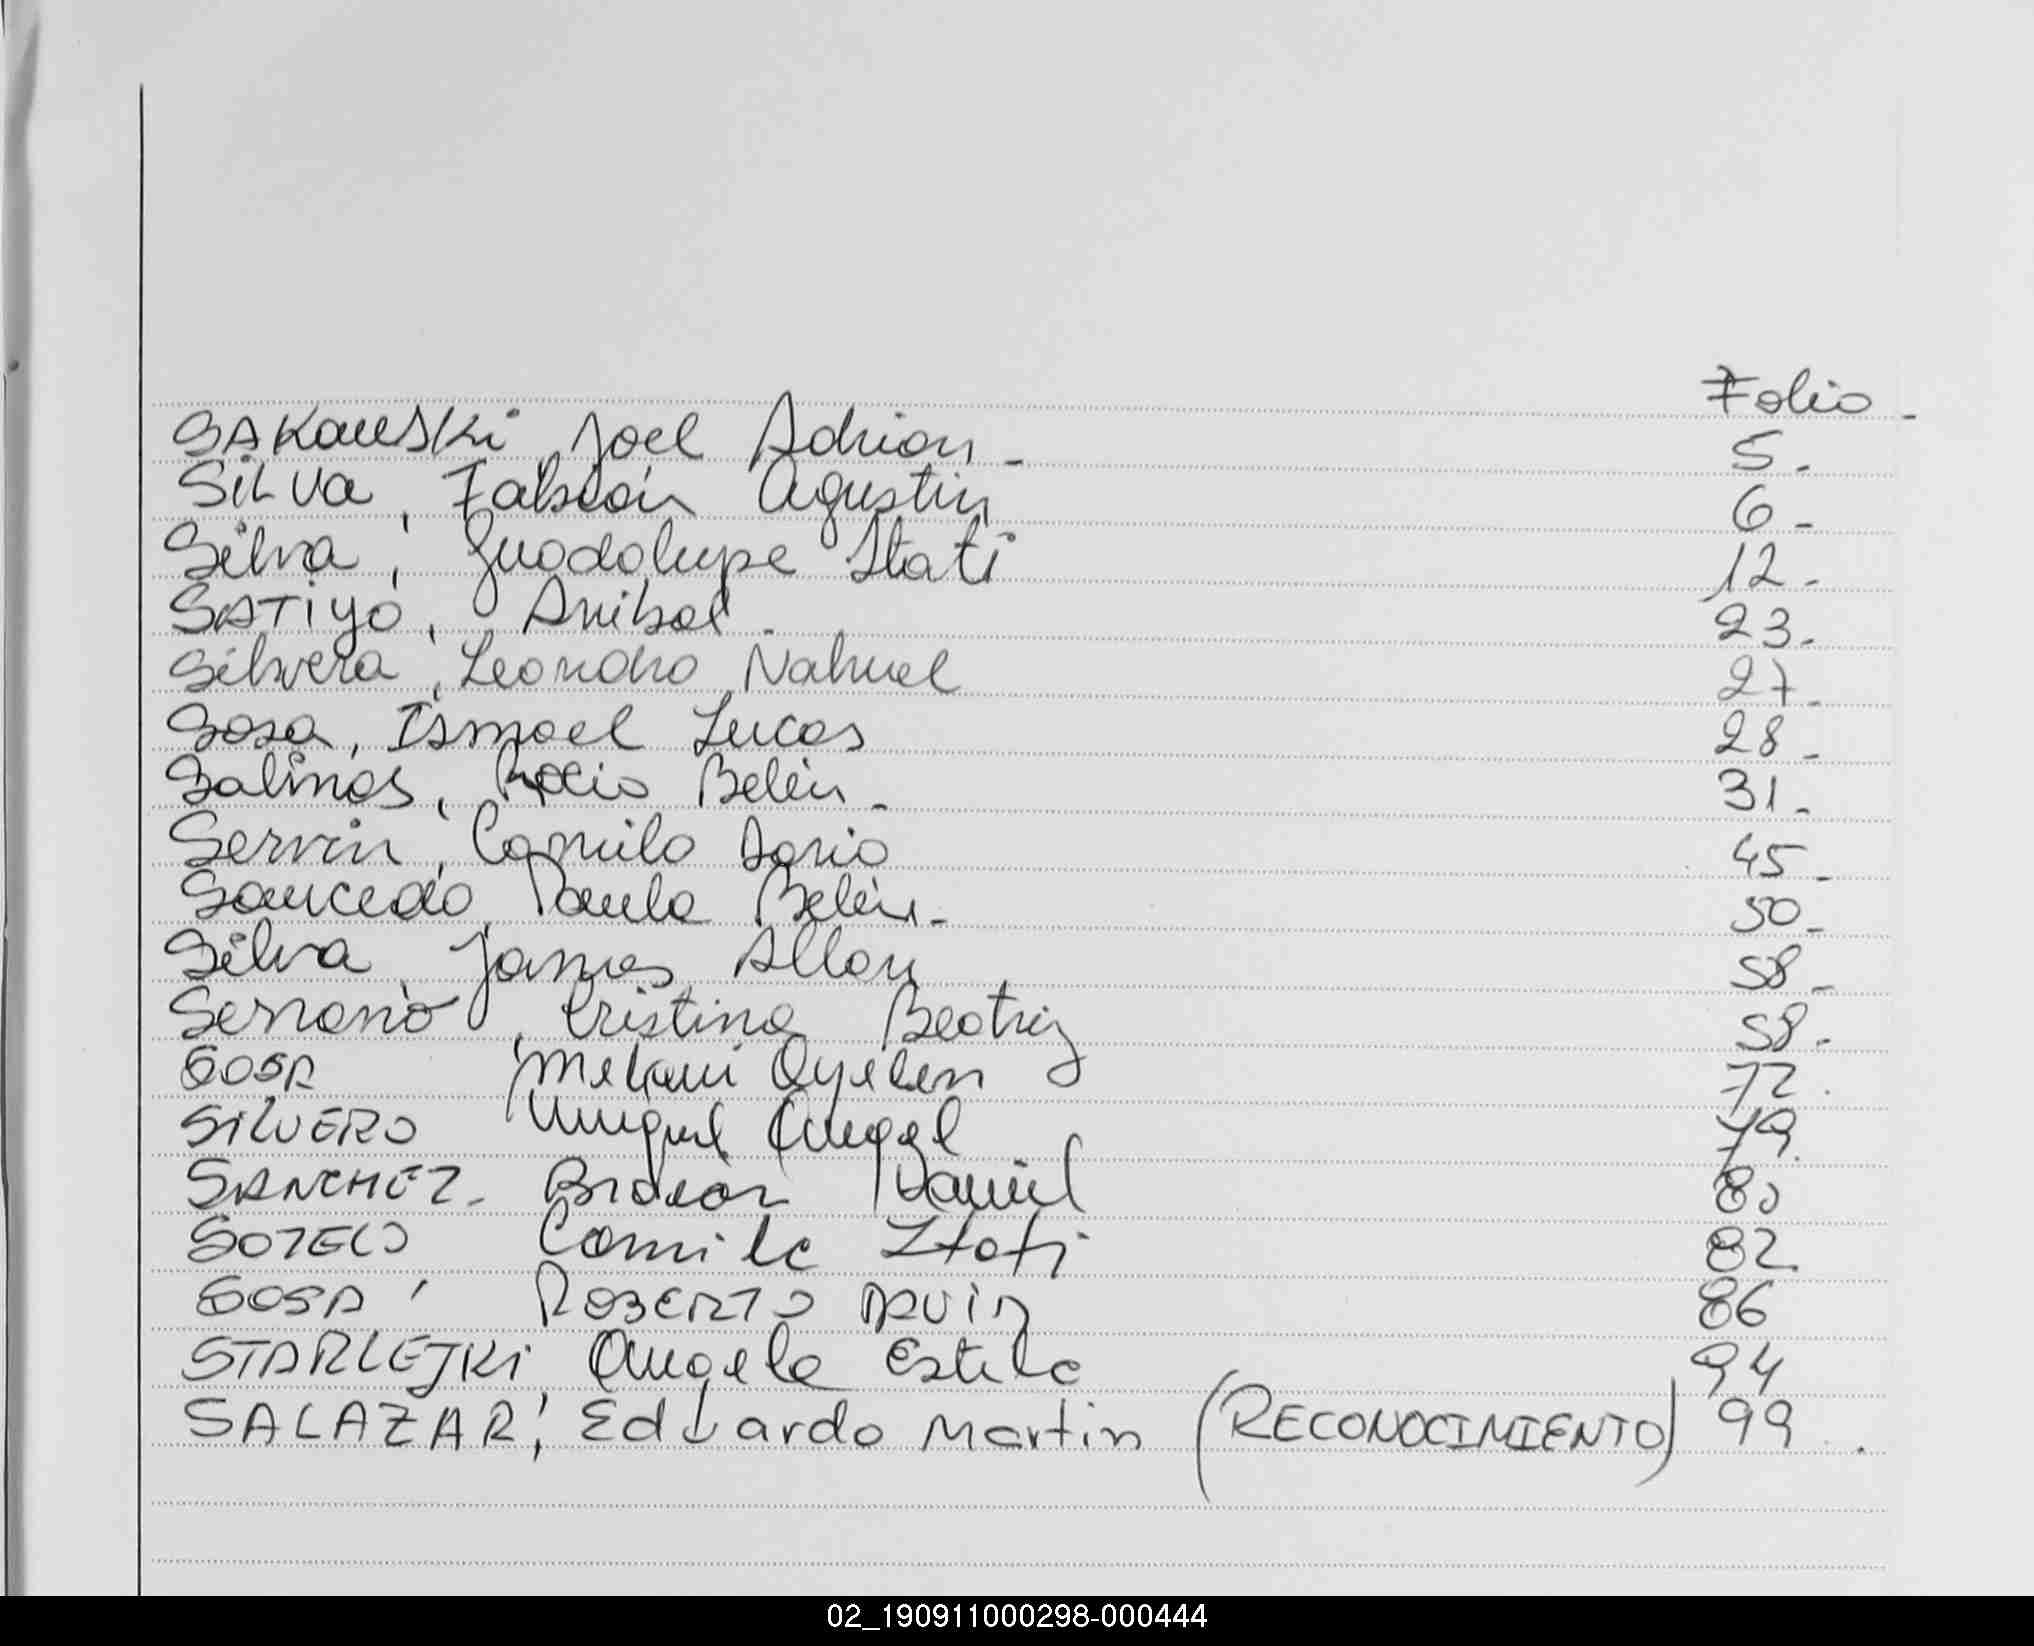 Folio -
SAKOWSKi Joel Adrian - 5 -
SiLVa, Fabián Agustin 6 -
Silva, Guadalupe Itatí 12 -
SATiyó, Anibal - 23 -
Silvera, Leandro Nahuel 27 -
Sosa, Ismael Lucas 28 -
Salinas, Rocio Belén - 31 -
Servin, Camilo Dario 45 -
Saucedo, Paula Belén - 50 -
Silva, James Allan 58 -
Serrano, Cristina Beatriz 58 -
SOSA, Melani Ayelen 72 -
SiLVERO Miguel Angel 79.
SANCHEZ - Braian Daniel 80
SOTELO Camila Itati 82.
SOSA, ROBERTO 86
Angela Estela 94
SALAZAR, Eduardo Martin (RECONOCIMIENTO) 99 .
02_190911000298-000444